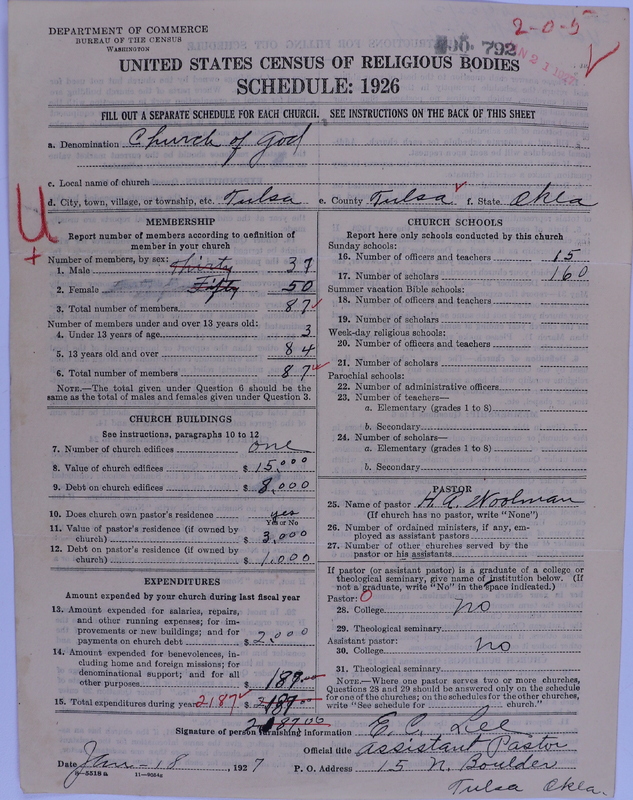 DEPARTMENT OF COMMERCE
BUREAU OF THE CENSUS
WASHINGTON
2-0-5
792
UNITED STATES CENSUS OF RELIGIOUS BODIES
SCHEDULE: 1926
FILL OUT A SEPARATE SCHEDULE FOR EACH CHURCH. SEE INSTRUCTIONS ON THE BACK OF THIS SHEET
a. Denomination Church of God
c. Local name of church
d. City, town, village, or township, etc. Tulsa e. County Tulsa f. State Okla
U
+
MEMBERSHIP
Report number of members according to definition of
member in your church
Number of members, by sex:
1. Male Thirty 37
2. Female Fifty 50
3. Total number of members 87
Number of members under and over 13 years old:
4. Under 13 years of age 3
5. 13 years old and over 84
6. Total number of members 87
NOTE.—The total given under Question 6 should be
same as the total of males and females given under Question 3.
CHURCH BUILDINGS
See instructions, paragraphs 10 to 12
7. Number of church edifices one
8. Value of church edifices $ 15,000
9. Debt on church edifices $ 8,000
10. Does church own pastor's residence yes
Yes or No
11. Value of pastor's residence (if owned by
church) $ 3,000
12. Debt on pastor's residence (if owned by
church) $ 1,000
EXPENDITURES
Amount expended by your church during last fiscal year
13. Amount expended for salaries, repairs,
and other running expenses; for im-
provements or new buildings; and for
payments on church debt $ 2,000
14. Amount expended for benevolences, in-
cluding home and foreign missions; for
denominational support; and for all
other purposes $ 187
15. Total expenditures during year 2187 $
2187.00
CHURCH SCHOOLS
Report here only schools conducted by this church
Sunday schools:
16. Number of officers and teachers 15
17. Number of scholars 160
Summer vacation Bible schools:
18. Number of officers and teachers
19. Number of scholars
Week-day religious schools:
20. Number of officers and teachers
21. Number of scholars
Parochial schools:
22. Number of administrative officers
23. Number of teachers—
a. Elementary (grades 1 to 8)
b. Secondary
24. Number of scholars—
a. Elementary (grades 1 to 8)
b. Secondary
PASTOR
25. Name of pastor H. A. Woolman
(If church has no pastor, write "None")
26. Number of ordained ministers, if any, em-
ployed as assistant pastors
27. Number of other churches served by the
pastor or his assistants
If pastor (or assistant pastor) is a graduate of a college or
theological seminary, give name of institution below. (If
not a graduate, write "No" in the space indicated.)
Pastor: 0
28. College no
29. Theological seminary
Assistant pastor:
30. College no
31. Theological seminary
NOTE.—Where one pastor serves two or more churches,
Questions 28 and 29 should be answered only on the schedule
for one of the churches; on the schedules for the other churches,
write "See schedule for church."
Signature of person furnishing information E. C. Lee
Official title Assistant Pastor
Date Jan-18, 1927 P. O. Address 15 N. Boulder
Tulsa Okla.
8-5518a 11-9064a